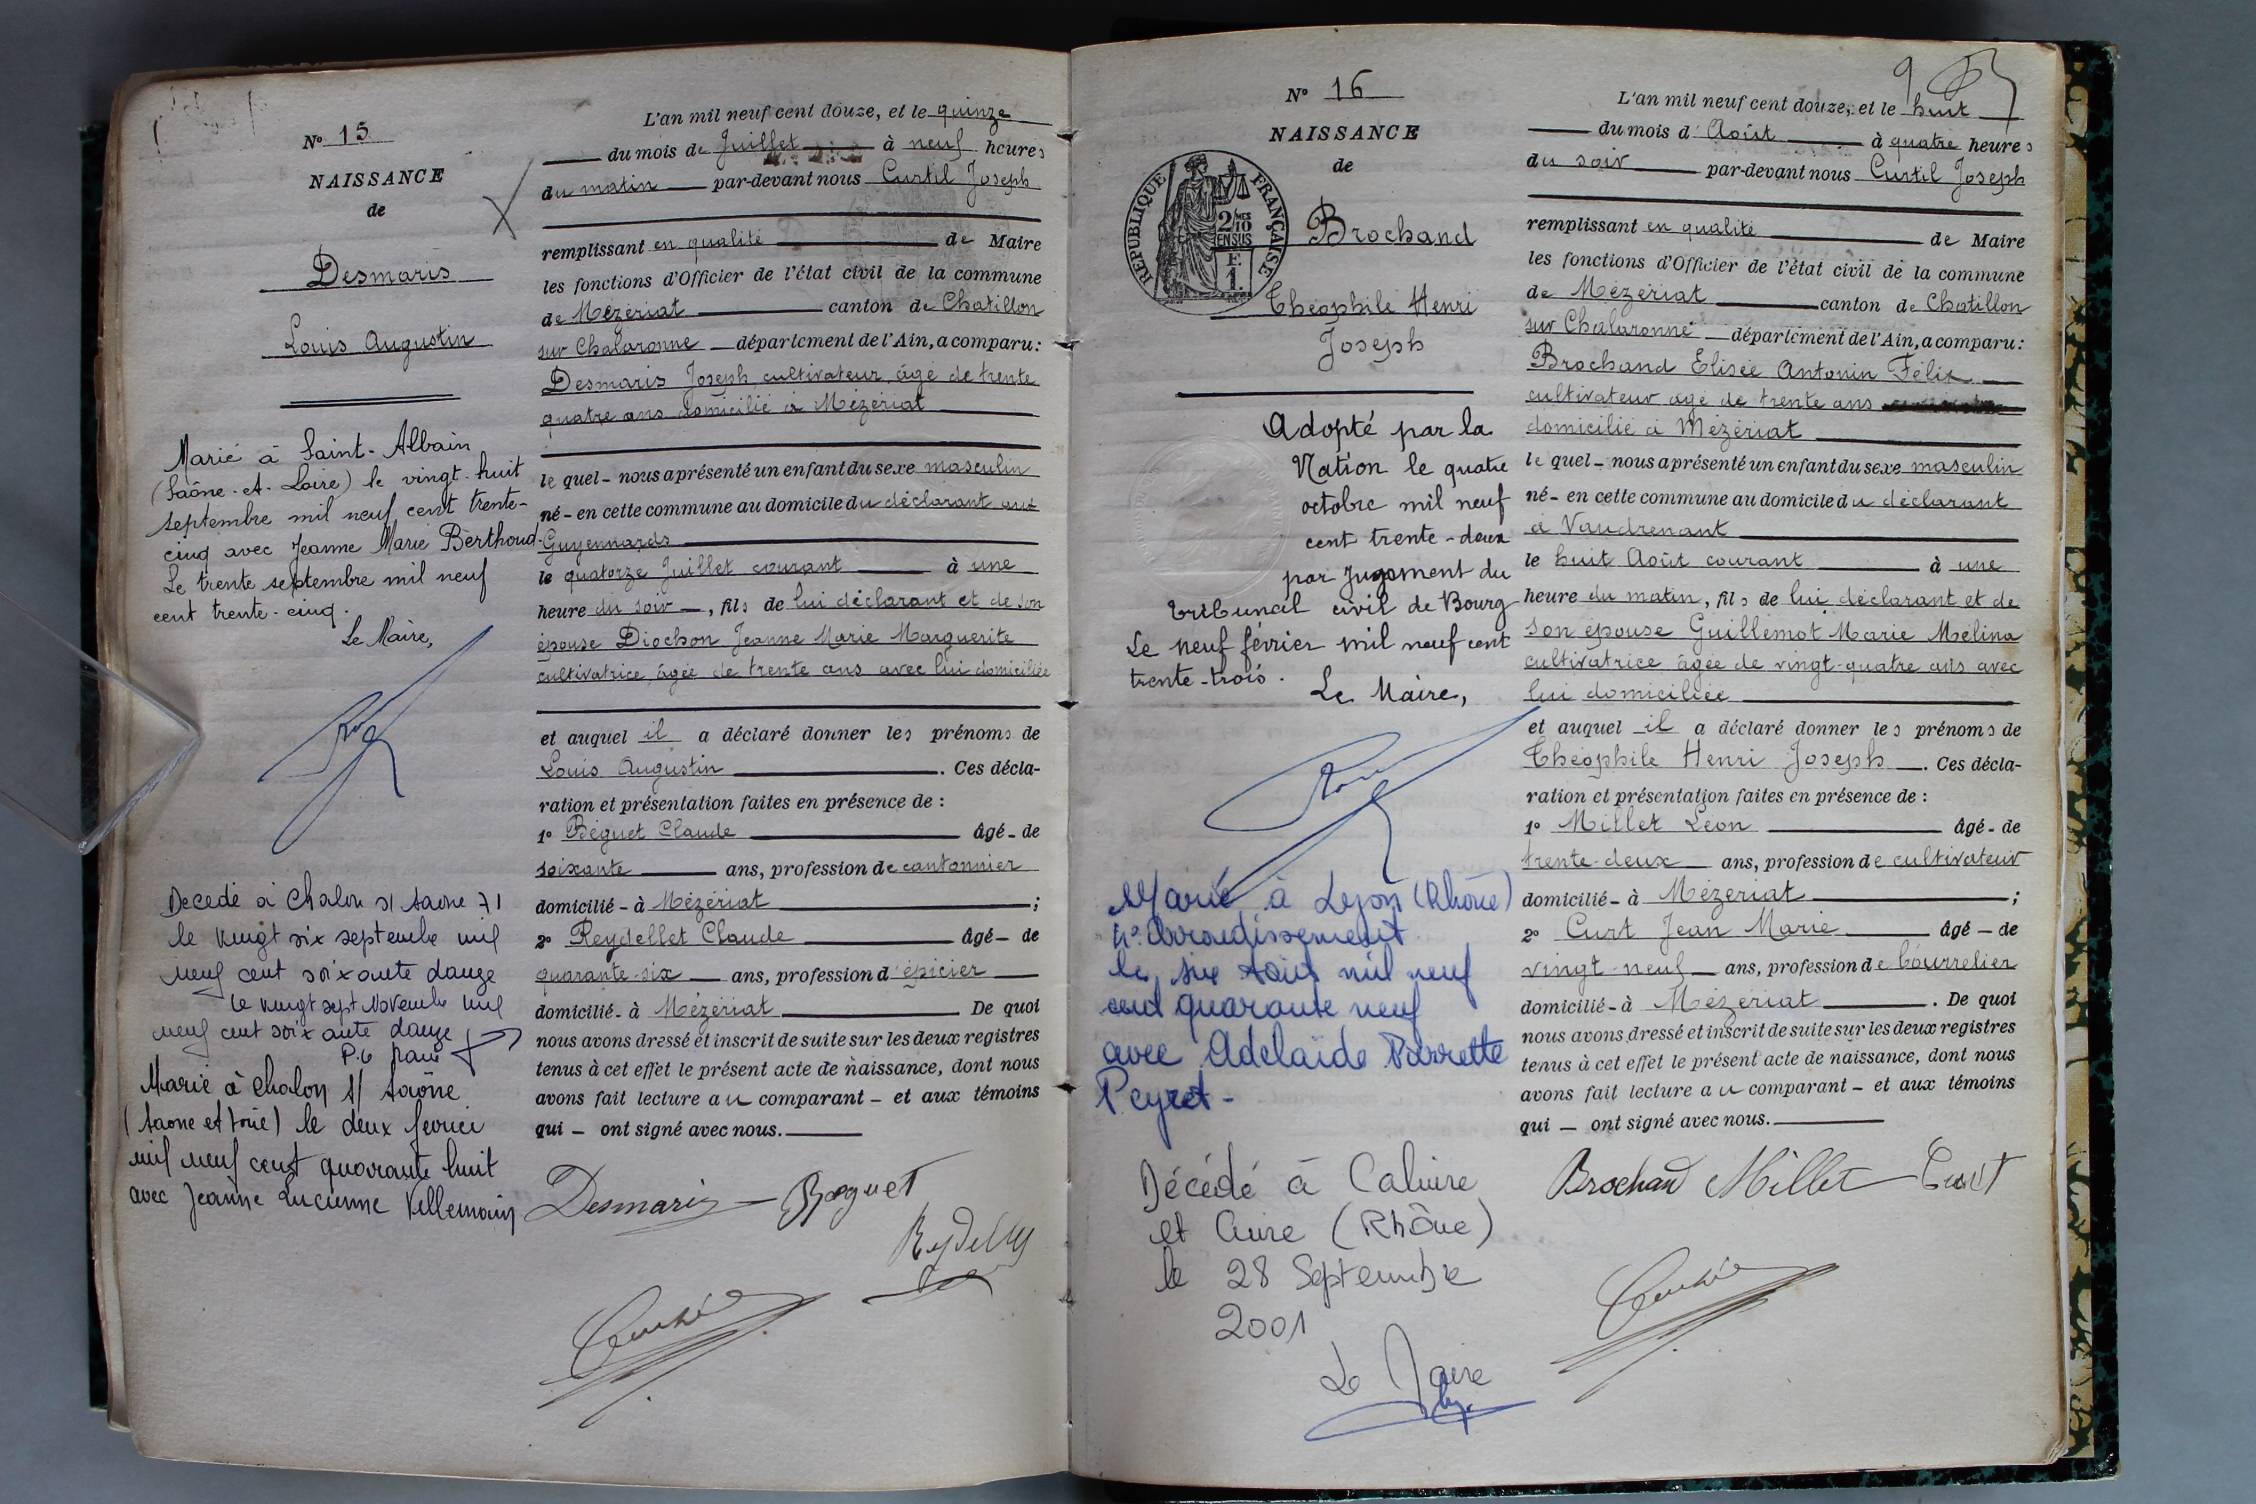 N° 15
NAISSANCE
de
Desmaris
Louis Augustin
Marié à Saint-Albain
(Saône-et-Loire) le vingt-huit
septembre mil neuf cent trente-
cinq avec Jeanne Marie Berthoud.
Le trente septembre mil neuf
cent trente-cinq.
Le Maire,
Decedé à Chalon s/ Saone 71
le vingt six septembre mil
neuf cent soixante douze
le vingt sept Novembre mil
neuf cent soixante douze
Marié à Chalon s/ Saône
(Saone et Loire) le deux fevrier
mil neuf cent quarante huit
avec Jeanne Lucienne Villemain
L'an mil neuf cent douze, et le quinze
du mois de Juillet à neuf heures
du matin par-devant nous Curtil Joseph
remplissant en qualité de Maire
les fonctions d'Officier de l'état civil de la commune
de Mézériat canton de Chatillon
sur Chalaronne département de l'Ain, a comparu:
Desmaris Joseph, cultivateur, âgé de trente
quatre ans domicilié à Mézériat
le quel - nous a présenté un enfant du sexe masculin
né - en cette commune au domicile du déclarant aux
Guyennards
le quatorze Juillet courant à une
heure du soir, fils de lui déclarant et de son
épouse Diochon Jeanne Marie Marguerite
cultivatrice, âgée de trente ans avec lui domiciliée
et auquel il a déclaré donner les prénoms de
Louis Augustin. Ces décla-
ration et présentation faites en présence de :
1° Béguet Claude âgé - de
soixante ans, profession de cantonnier
domicilié - à Mézériat ;
2° Reydellet Claude âgé - de
quarante-six ans, profession d'épicier
domicilié - à Mézériat De quoi
nous avons dressé et inscrit de suite sur les deux registres
tenus à cet effet le présent acte de naissance, dont nous
avons fait lecture au comparant - et aux témoins
qui - ont signé avec nous.
Desmaris Béguet
Reydellet
9
N° 16
NAISSANCE
de
RÉPUBLIQUE FRANÇAISE
2/10 MES
EN SUS
F.
1.
Brochand
Théophile Henri
Joseph
Adopté par la
Nation le quatre
octobre mil neuf
cent trente-deux
par jugement du
tribunal civil de Bourg
Le neuf février mil neuf cent
trente-trois.
Le Maire,
Marié à Lyon (Rhône)
4e Arrondissement
le six Août mil neuf
cent quarante neuf
avec Adelaïde Pierrette
Peyret -
Décédé à Caluire
et Cuire (Rhône)
le 28 Septembre
2001
Le Maire
L'an mil neuf cent douze, et le huit
du mois d'Août à quatre heures
du soir par-devant nous Curtil Joseph
remplissant en qualité de Maire
les fonctions d'Officier de l'état civil de la commune
de Mézériat canton de Chatillon
sur Chalaronne département de l'Ain, a comparu:
Brochand Elisée Antonin Félix
cultivateur âgé de trente ans
domicilié à Mézériat
le quel - nous a présenté un enfant du sexe masculin
né - en cette commune au domicile du déclarant
à Vaudrenant
le huit Août courant à une
heure du matin, fils de lui déclarant et de
son épouse Guillemot Marie Mélina
cultivatrice âgée de vingt-quatre ans avec
lui domiciliée
et auquel il a déclaré donner les prénoms de
Théophile Henri Joseph. Ces décla-
ration et présentation faites en présence de :
1° Millet Léon âgé - de
trente-deux ans, profession de cultivateur
domicilié - à Mézériat ;
2° Curt Jean Marie âgé - de
vingt-neuf ans, profession de bourrelier
domicilié - à Mézériat. De quoi
nous avons dressé et inscrit de suite sur les deux registres
tenus à cet effet le présent acte de naissance, dont nous
avons fait lecture au comparant - et aux témoins
qui - ont signé avec nous.
Brochand Millet Curt